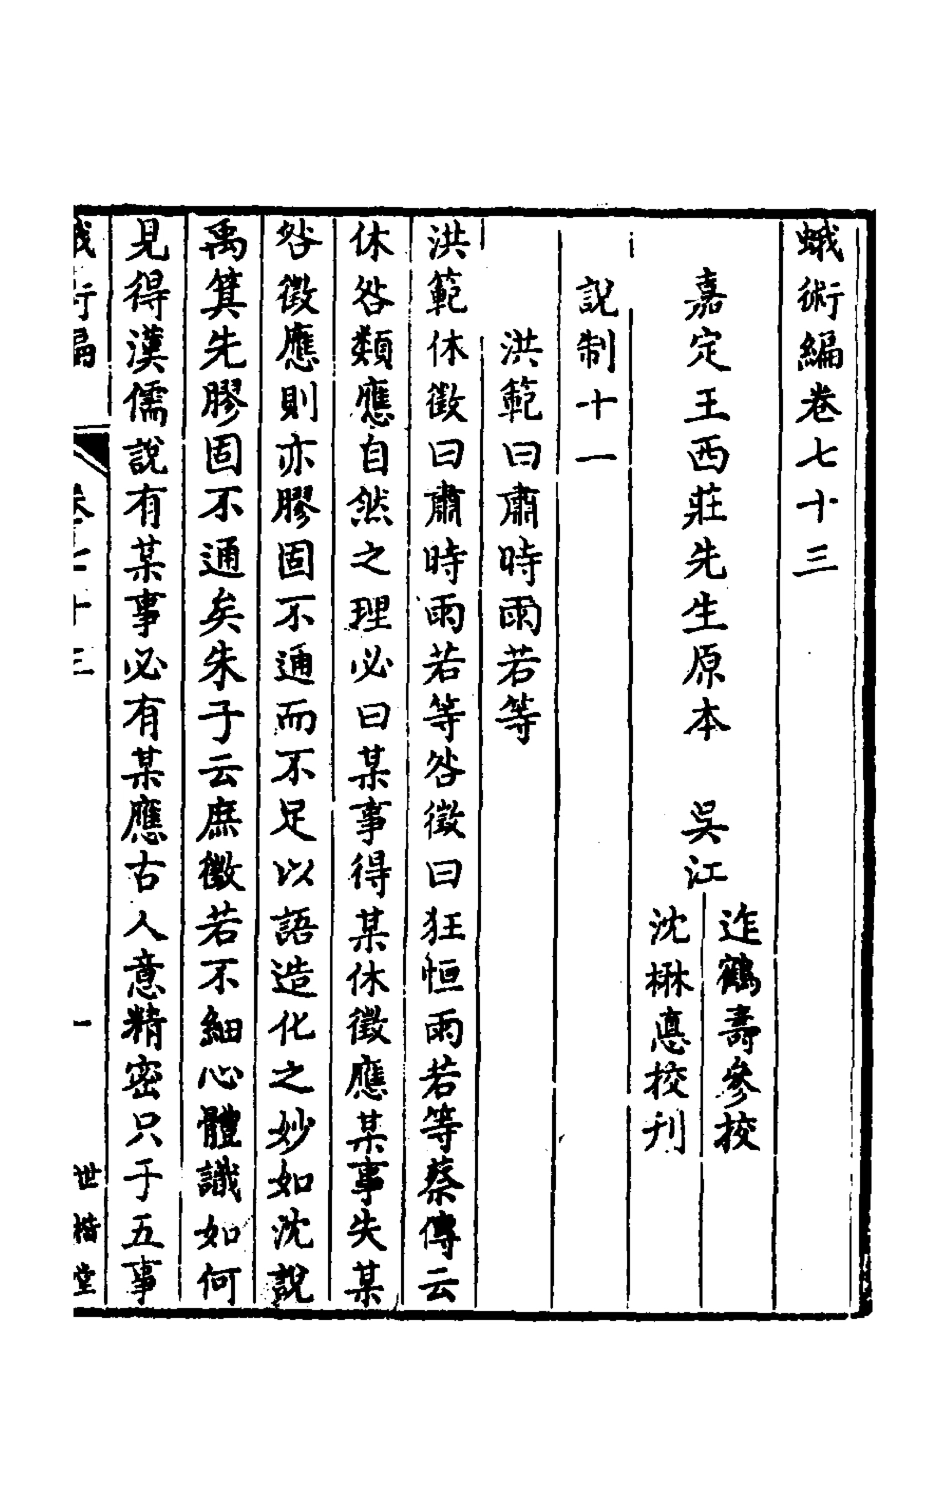 蛾術編卷七十三
嘉定王西莊先生原本　吳江
迮鶴壽參校
沈楙悳校刊
說制十一
洪範曰肅時雨若等
洪範休徵曰肅時雨若等咎徵曰狂恒雨若等蔡傳云
休咎類應自然之理必曰某事得某休徵應某事失某
咎徵應則亦膠固不通而不足以語造化之妙如沈說
禹箕先膠固不通矣朱子云庶徵若不細心體識如何
見得漢儒說有某事必有某應古人意精密只于五事
蛾術編
卷七十三
一
世楷堂